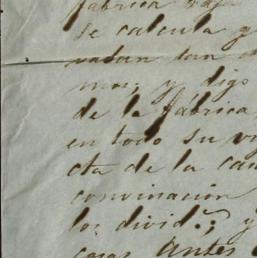 fábrica
se calcula y
tan
mos; y digo
de la fábrica
en todo su
cta de la
convinación
los divid.s; y
cosas Antes